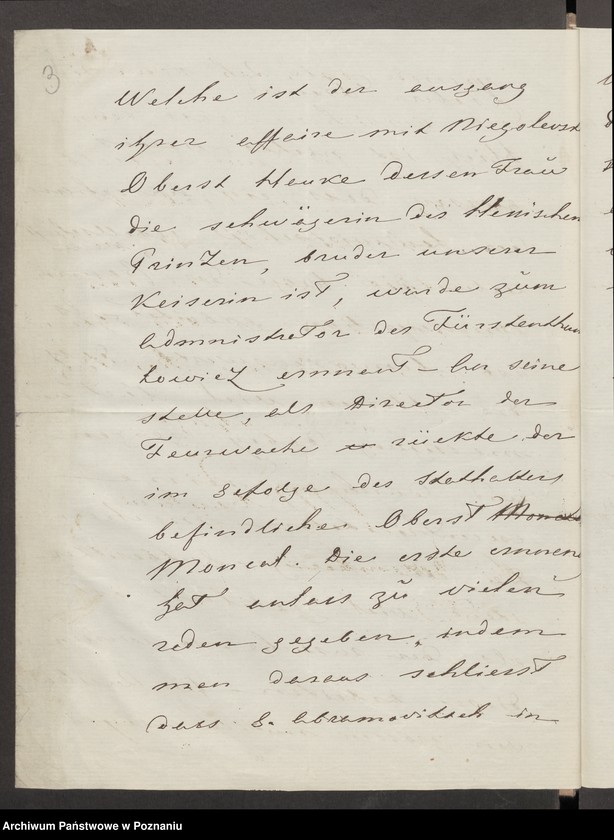 3
Welche ist der ausgang
ihrer affaire mit Niegolewsk
Oberst Hauke dessen Frau
die schwägerin des Hessischen
Prinzen, bruder unserer
Keiserin ist, wurde zum
Admnistrator des Fürstenthum
Lowicz ernnent - An seine
stelle, als Director der
Feurwache rückte der
im Gefolge des Stathalters
befindliche Oberst
Moncal. Die erste ernnen
hat anlass zu vielen
reden gegeben, indem
man daraus schliesst
dass G. Abramovitsch in
Archiwum Państwowe w Poznaniu